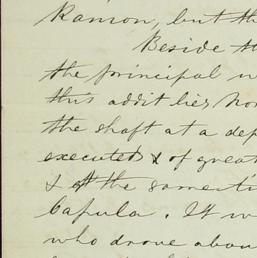 Ramon, but th
Beside th
the principal w
this addit lies nor
the shaft at a dep
executed & of great
& at the same ti
Capula. It w
who drove abou